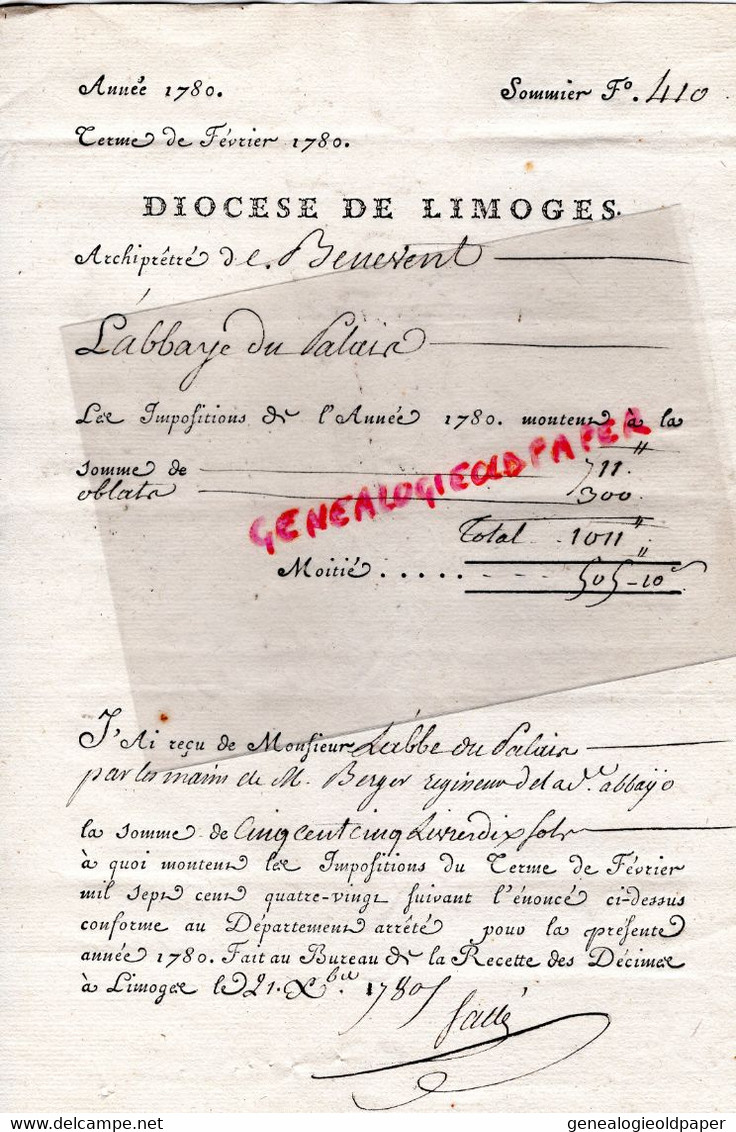 Année 1780. Sommier Fo. 410
Terme de Février 1780.
DIOCESE DE LIMOGES.
Archiprêtré de. Benevent
L'abbaye du Palais
Les Impositions de l'Année 1780. montent à la
somme de 711 "
oblats 300
Total 1011 "
Moitié . . . . . 505 - 10 s
GENEALOGIEOLDPAPER
J'Ai reçu de Monsieur L'abbé du Palais
par les mains de M. Berger regisseur de lad.te abbaye
la somme de Cinq cent cinq Livres dix sols
à quoi montent les Impositions du Terme de Février
mil sept cent quatre-vingt suivant l'énoncé ci-dessus
conforme au Département arrêté pour la présente
année 1780. Fait au Bureau de la Recette des Décimes
à Limoges le 21. Xbre 1780
genealogieoldpaper